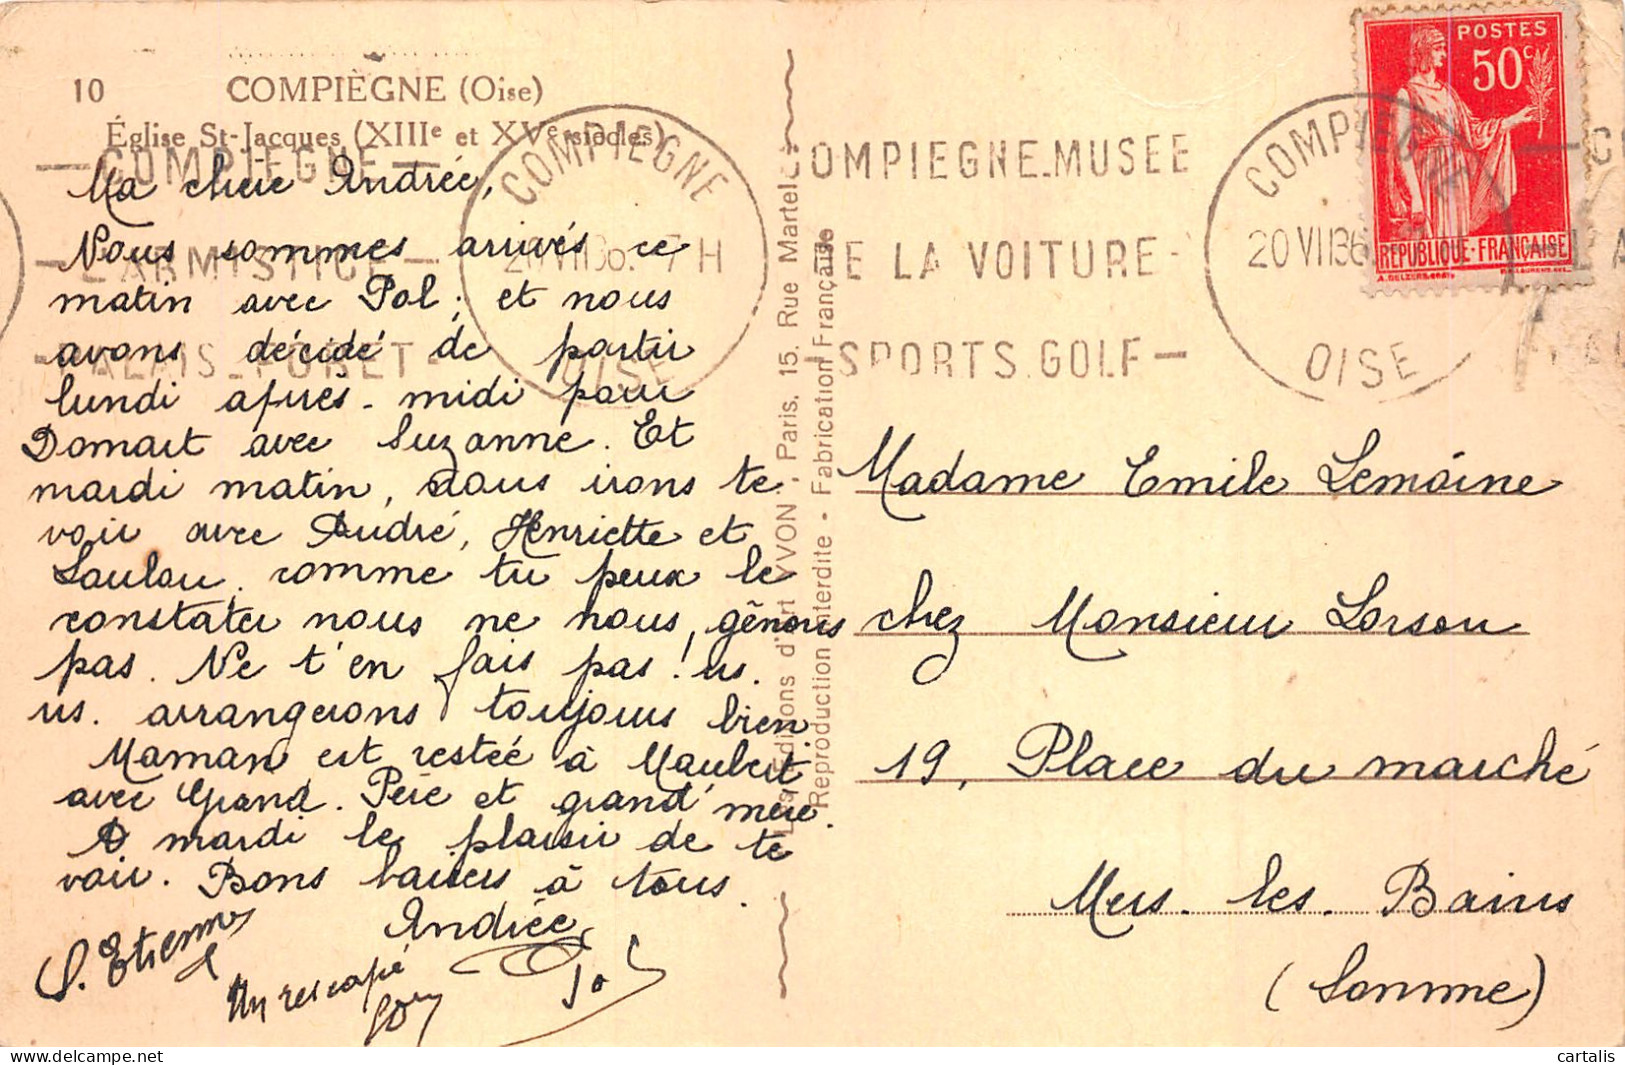 10 COMPIÈGNE (Oise)
Église St-Jacques (XIIIe et XVe siècles)
Ma chère Andrée,
Nous sommes arrivés ce
matin avec Pol ; et nous
avons décidé de partir
lundi après-midi pour
Domart avec Suzanne. Et
mardi matin, nous irons te
voir avec André, Henriette et
Loulou. comme tu peux le
constater nous ne nous gênons
pas. Ne t'en fais pas ! ns.
ns. arrangerons toujours bien.
Maman est restée à Maubert
avec Grand. Père et grand'mère.
A mardi le plaisir de te
voir. Bons baisers à tous.
Andrée
S. Etienne
Un rescapé
Les Editions d'Art YVON, Paris, 15, Rue Martel
Reproduction Interdite - Fabrication Française
COMPIEGNE
L'ARMISTICE
PALAIS_FORET
COMPIEGNE
20 VII 36. 7H
OISE
COMPIEGNE_MUSEE
DE LA VOITURE
SPORTS.GOLF
COMPIEGNE
20 VII 36
OISE
POSTES
50c
REPUBLIQUE·FRANÇAISE
Madame Emile Lemoine
chez Monsieur Lorson
19, Place du marché
Mers. les. Bains
(Somme)
cartalis